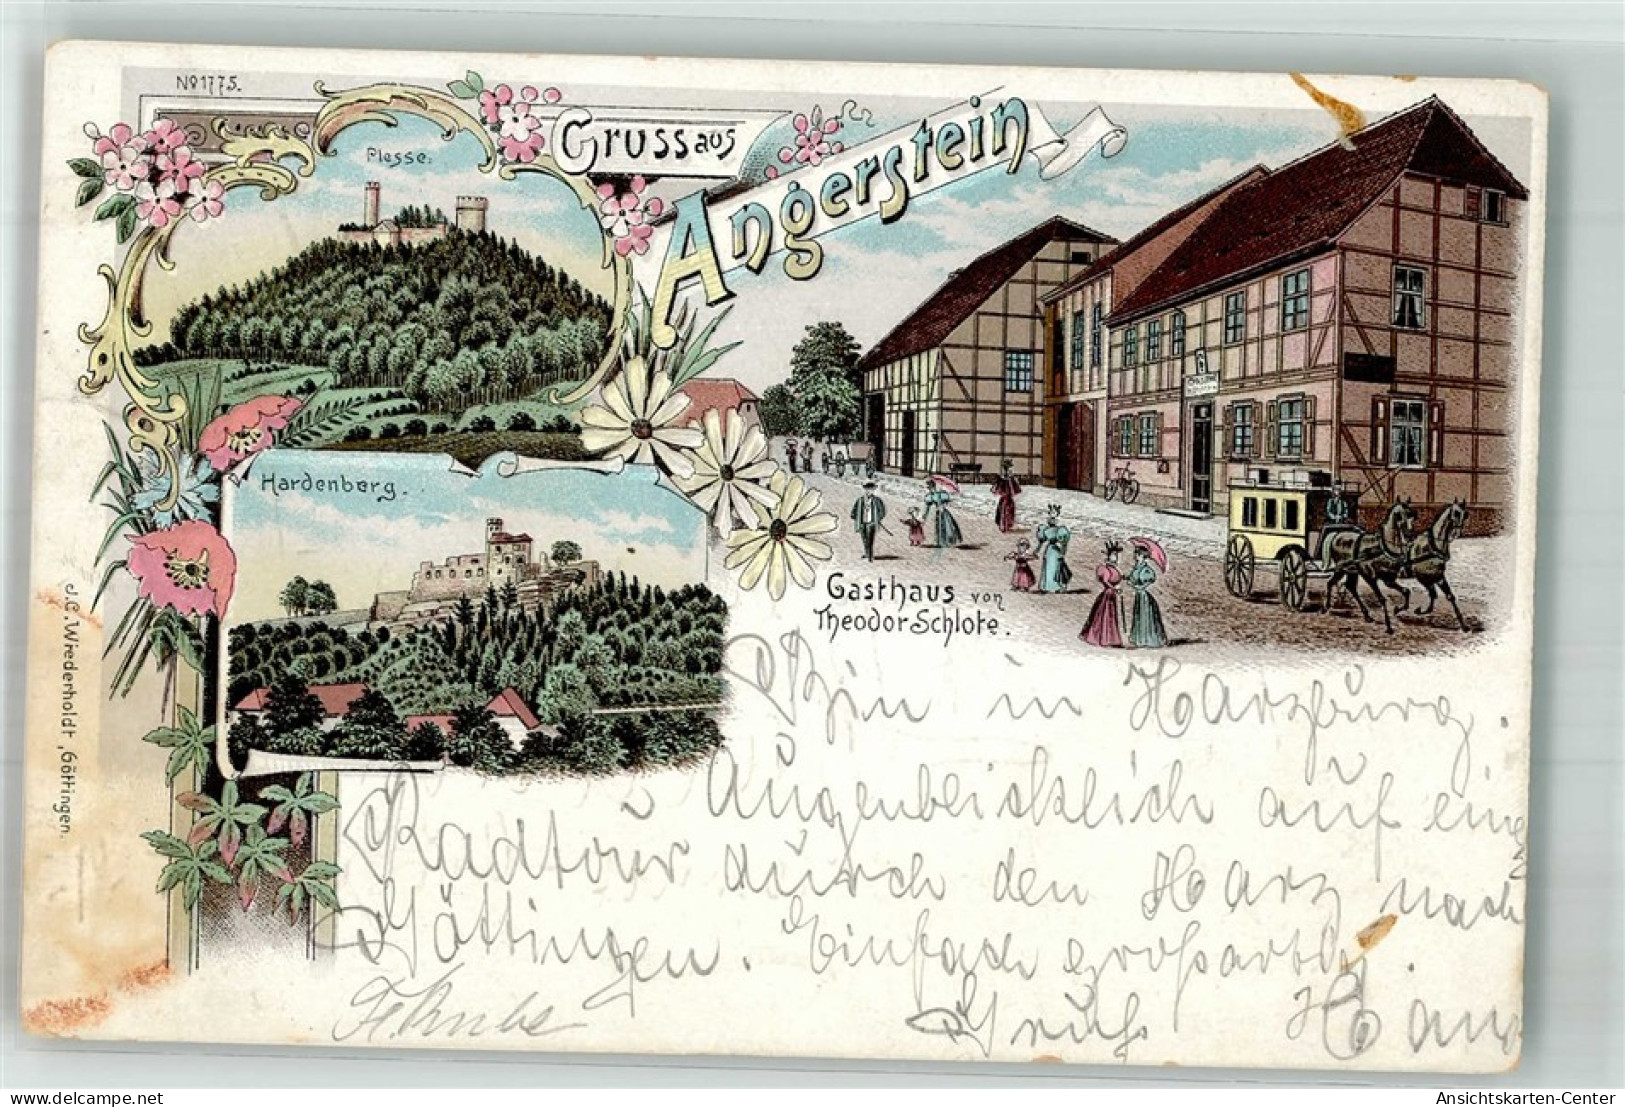 No 1775.
Gruss aus
Angerstein
Plesse.
Hardenberg.
Gasthaus von
Theodor Schlote.
J.C. Wiederholdt, Göttingen.
Bin in Harzburg.
Augenblicklich auf eine
Radtour durch den Harz nach
Göttingen. Einfach großartig.
Gruß Hans
delcampe.net
Ansichtskarten-Center